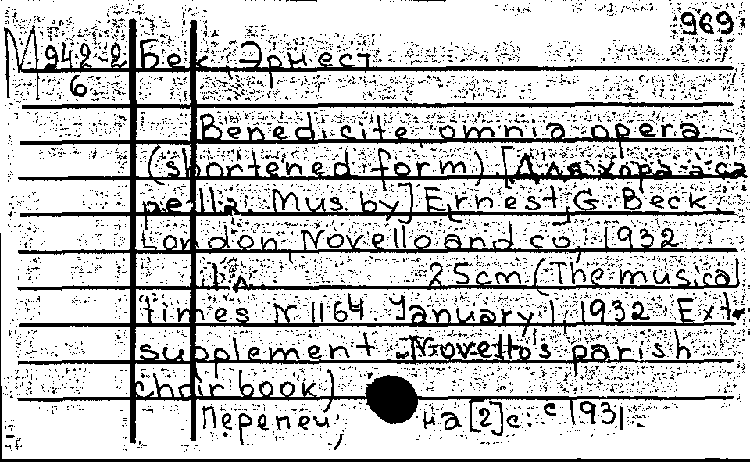 969
М 942-2 Бек, Эрнест
6
Benedicite, omnia opera
(shortened form) [Для хора a ca
pella. Mus. by] Ernest G. Beck.
London, Novello and co, 1932
1 л. 25cm. (The musical
times N 1164. January 1, 1932. Extr.
supplement. Novello's parish
choir book)
Перепеч, на [2] с. c 1931.